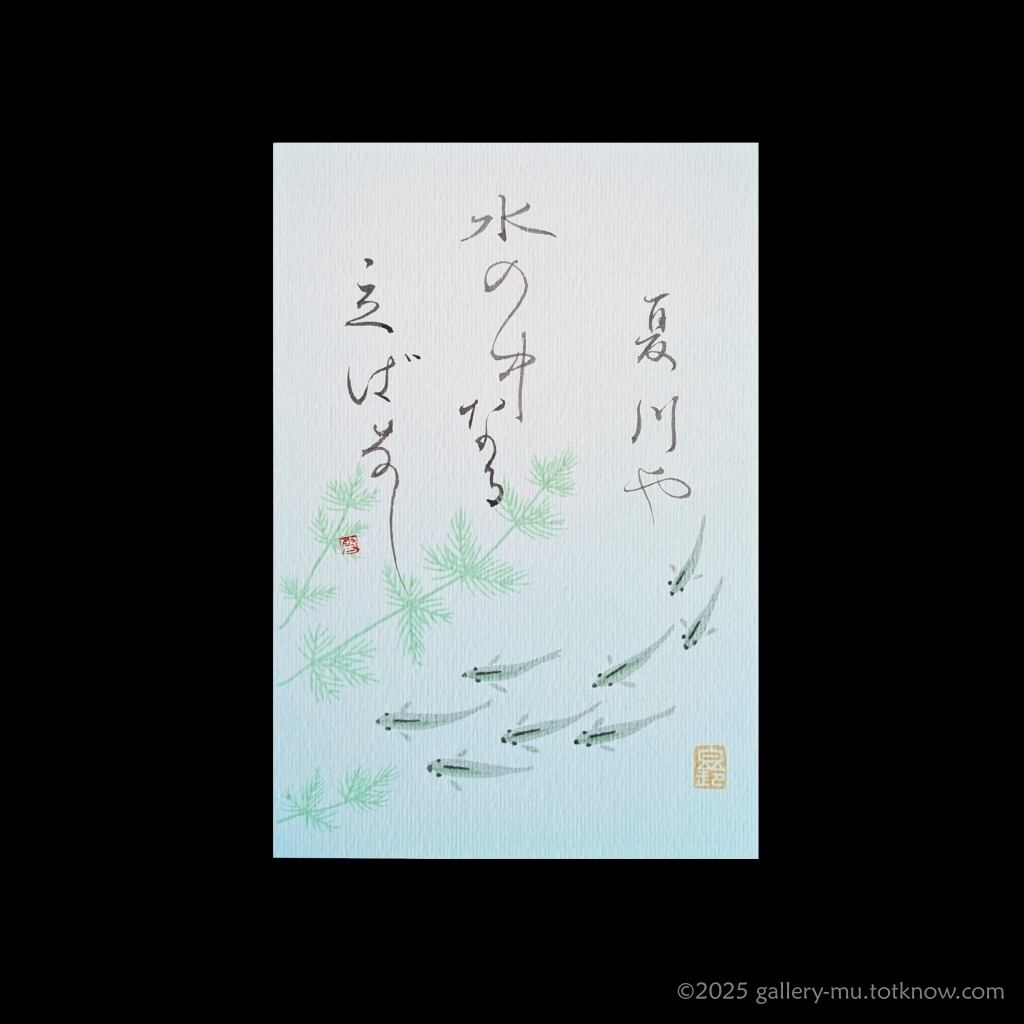 夏川や
水の中なる
立ばなし
©2025 gallery-mu.totknow.com